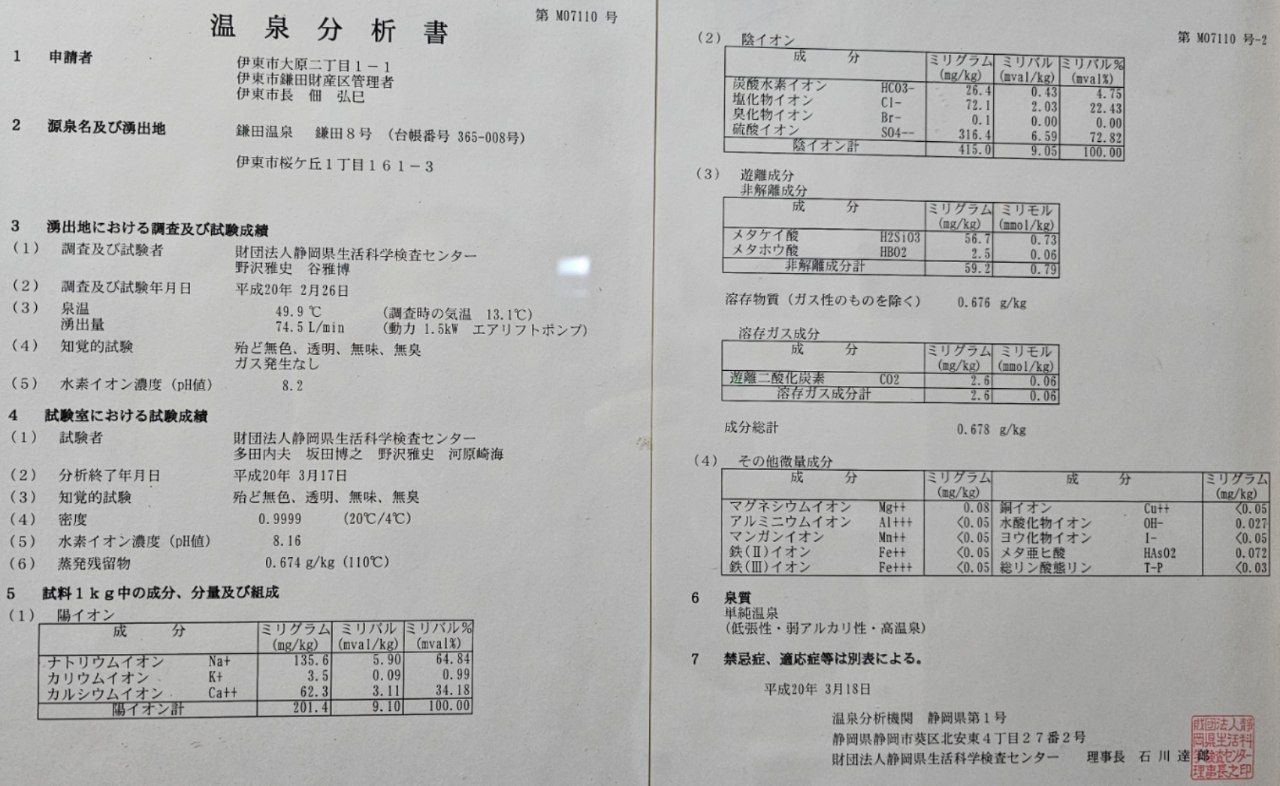 温泉分析書
第 M07110 号
1 申請者 伊東市大原二丁目1-1
伊東市鎌田財産区管理者
伊東市長 佃 弘巳
2 源泉名及び湧出地 鎌田温泉 鎌田8号 (台帳番号 365-008号)
伊東市桜ケ丘1丁目161-3
3 湧出地における調査及び試験成績
(1) 調査及び試験者 財団法人静岡県生活科学検査センター
野沢雅史 谷雅博
(2) 調査及び試験年月日 平成20年 2月26日
(3) 泉温 49.9 ℃ (調査時の気温 13.1℃)
湧出量 74.5 L/min (動力 1.5kW エアリフトポンプ)
(4) 知覚的試験 殆ど無色、透明、無味、無臭
ガス発生なし
(5) 水素イオン濃度(pH値) 8.2
4 試験室における試験成績
(1) 試験者 財団法人静岡県生活科学検査センター
多田内夫 坂田博之 野沢雅史 河原崎海
(2) 分析終了年月日 平成20年 3月17日
(3) 知覚的試験 殆ど無色、透明、無味、無臭
(4) 密度 0.9999 (20℃/4℃)
(5) 水素イオン濃度(pH値) 8.16
(6) 蒸発残留物 0.674 g/kg (110℃)
5 試料1kg中の成分、分量及び組成
(1) 陽イオン
成 分 ミリグラム ミリバル ミリバル%
(mg/kg) (mval/kg) (mval%)
ナトリウムイオン Na+ 135.6 5.90 64.84
カリウムイオン K+ 3.5 0.09 0.99
カルシウムイオン Ca++ 62.3 3.11 34.18
陽イオン計 201.4 9.10 100.00
第 M07110 号-2
(2) 陰イオン
成 分 ミリグラム ミリバル ミリバル%
(mg/kg) (mval/kg) (mval%)
炭酸水素イオン HCO3- 26.4 0.43 4.75
塩化物イオン Cl- 72.1 2.03 22.43
臭化物イオン Br- 0.1 0.00 0.00
硫酸イオン SO4-- 316.4 6.59 72.82
陰イオン計 415.0 9.05 100.00
(3) 遊離成分
非解離成分
成 分 ミリグラム ミリモル
(mg/kg) (mmol/kg)
メタケイ酸 H2SiO3 56.7 0.73
メタホウ酸 HBO2 2.5 0.06
非解離成分計 59.2 0.79
溶存物質(ガス性のものを除く) 0.676 g/kg
溶存ガス成分
成 分 ミリグラム ミリモル
(mg/kg) (mmol/kg)
遊離二酸化炭素 CO2 2.6 0.06
溶存ガス成分計 2.6 0.06
成分総計 0.678 g/kg
(4) その他微量成分
成 分 ミリグラム 成 分 ミリグラム
(mg/kg) (mg/kg)
マグネシウムイオン Mg++ 0.08 銅イオン Cu++ <0.05
アルミニウムイオン Al+++ <0.05 水酸化物イオン OH- 0.027
マンガンイオン Mn++ <0.05 ヨウ化物イオン I- <0.05
鉄(Ⅱ)イオン Fe++ <0.05 メタ亜ヒ酸 HAsO2 0.072
鉄(Ⅲ)イオン Fe+++ <0.05 総リン酸態リン T-P <0.03
6 泉質
単純温泉
(低張性・弱アルカリ性・高温泉)
7 禁忌症、適応症等は別表による。
平成20年 3月18日
温泉分析機関 静岡県第1号
静岡県静岡市葵区北安東4丁目27番2号
財団法人静岡県生活科学検査センター 理事長 石川達郎
財団法人静
岡県生活科
学検査センター
理事長之印